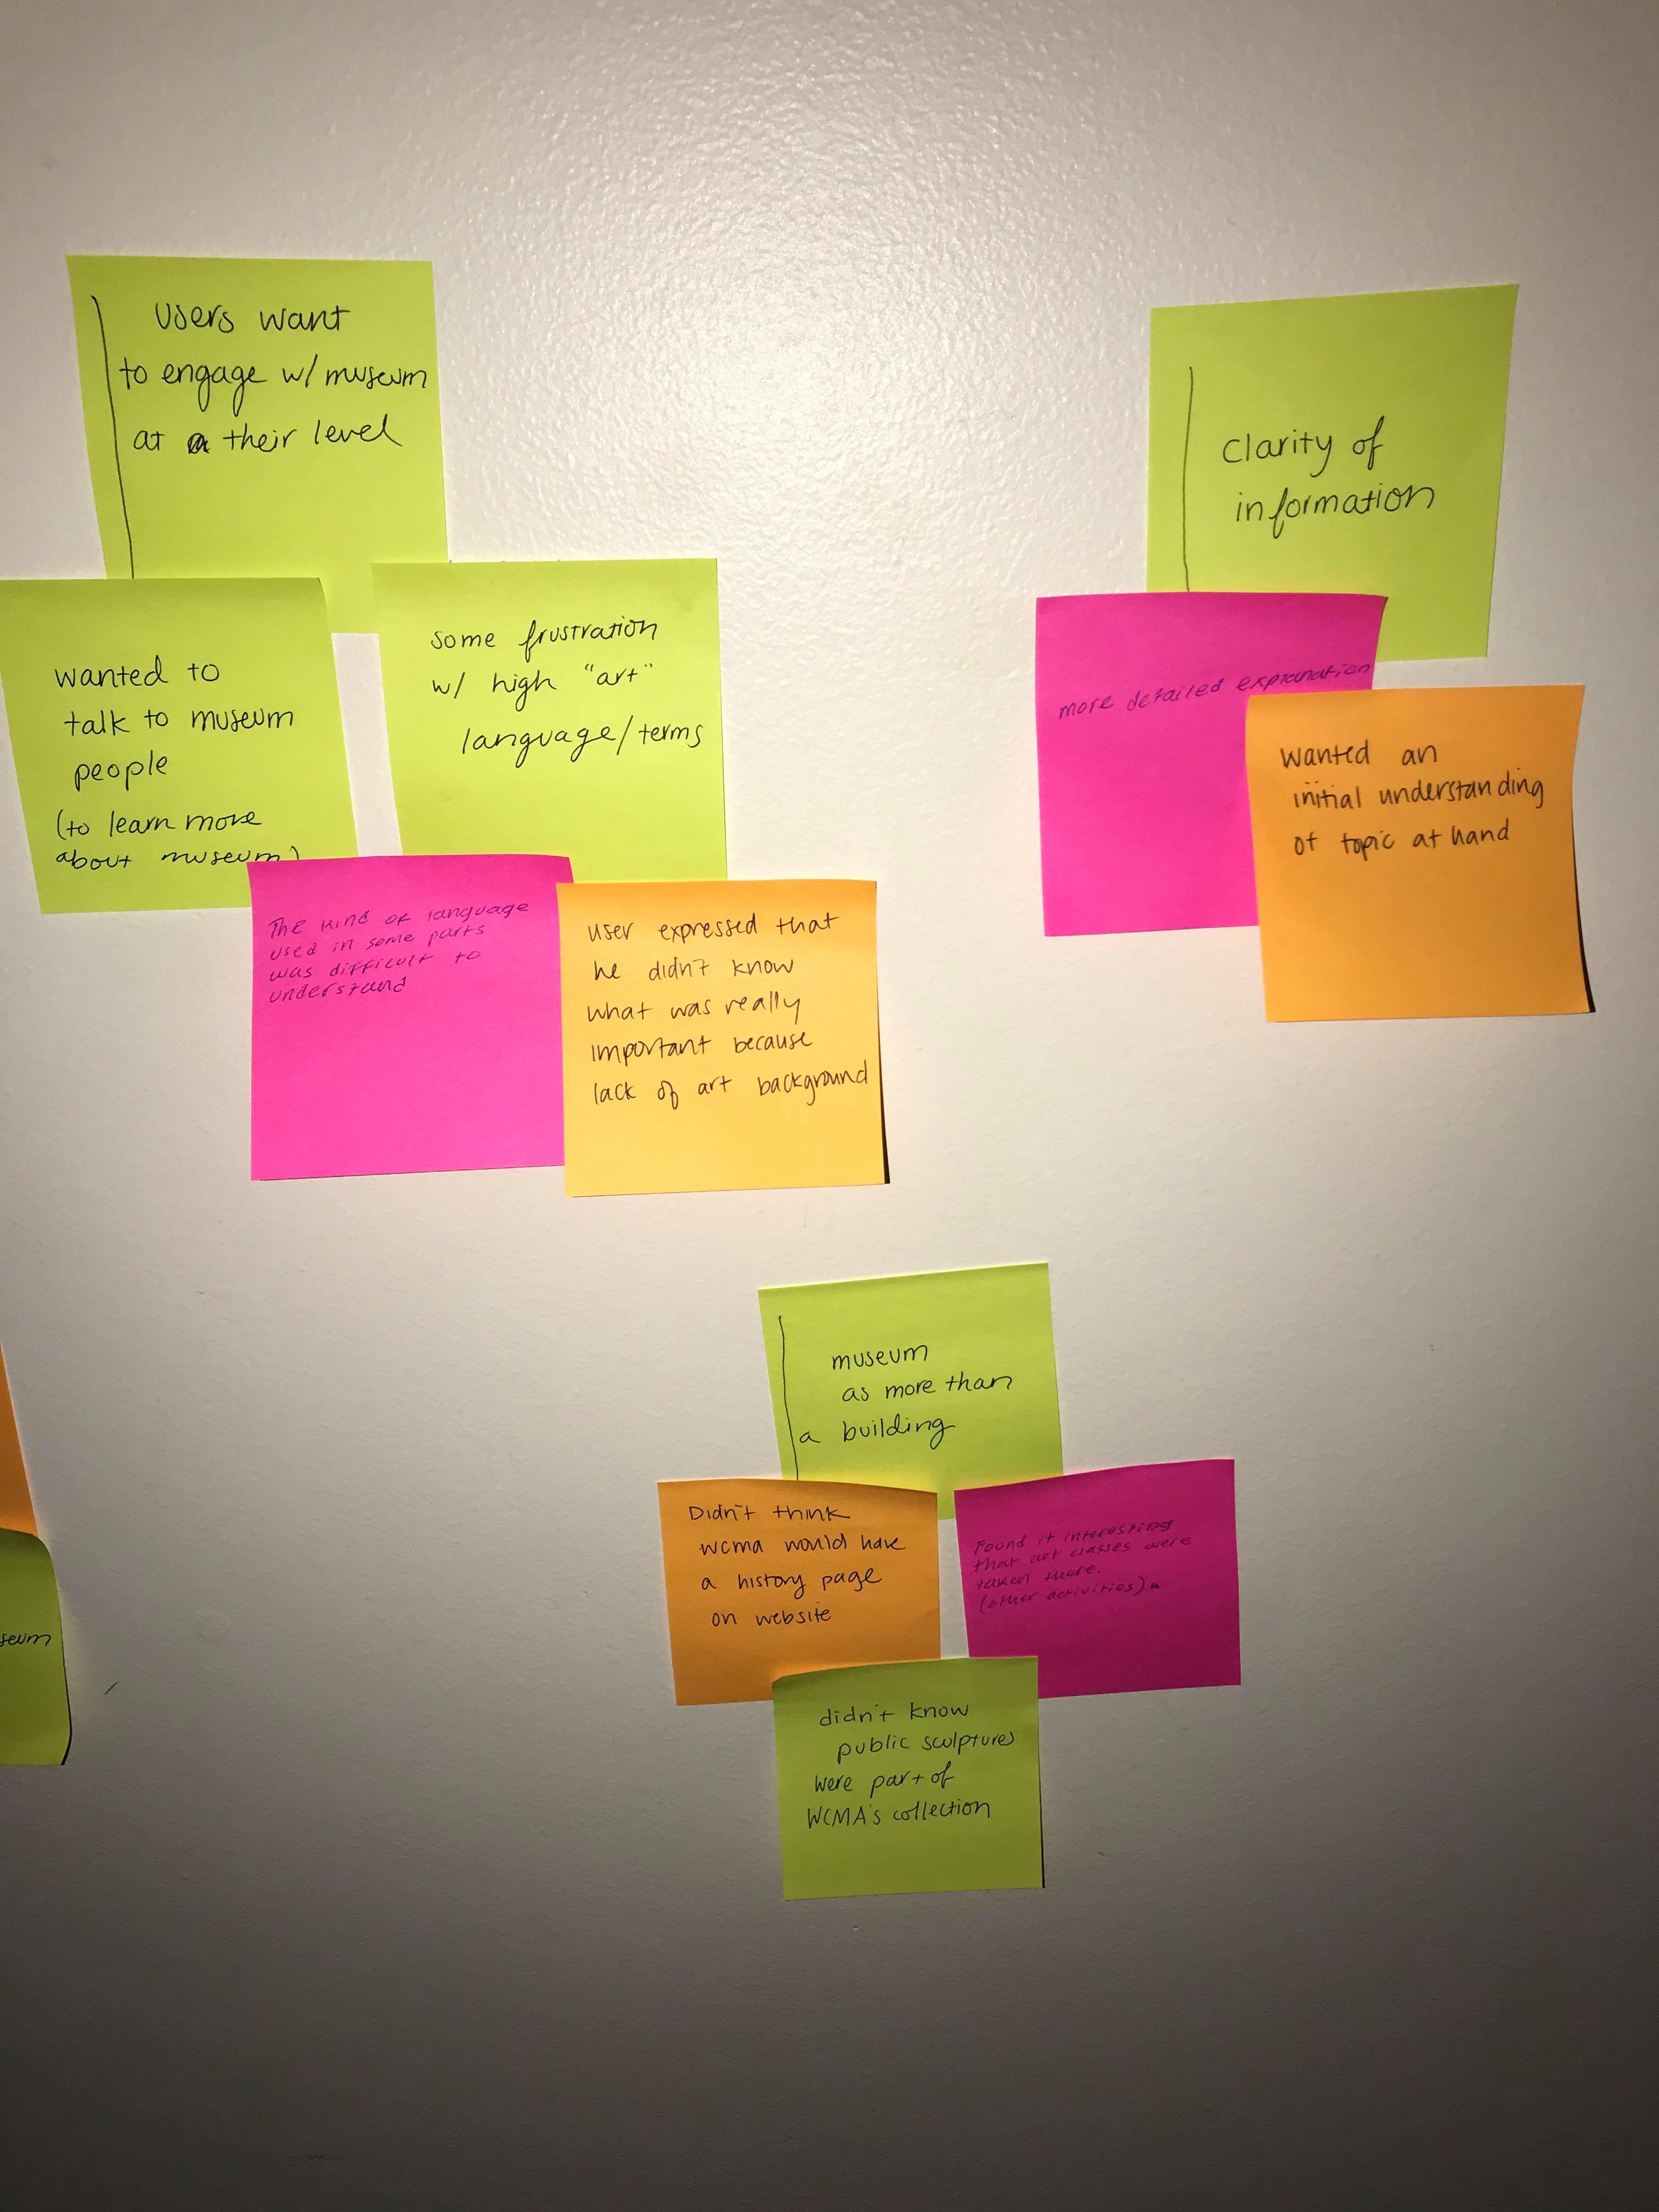 Users want
to engage w/ museum
at a their level
wanted to
talk to museum
people
(to learn more
about museum)
some frustration
w/ high "art"
language/terms
The kind of language
used in some parts
was difficult to
understand
User expressed that
he didn't know
what was really
important because
lack of art background
Clarity of
information
more detailed explanation
Wanted an
initial understanding
of topic at hand
museum
as more than
a building
Didn't think
wcma would have
a history page
on website
Found it interesting
that art classes were
taken there.
(other activities)
didn't know
public sculptures
were part of
WCMA's collection
seum